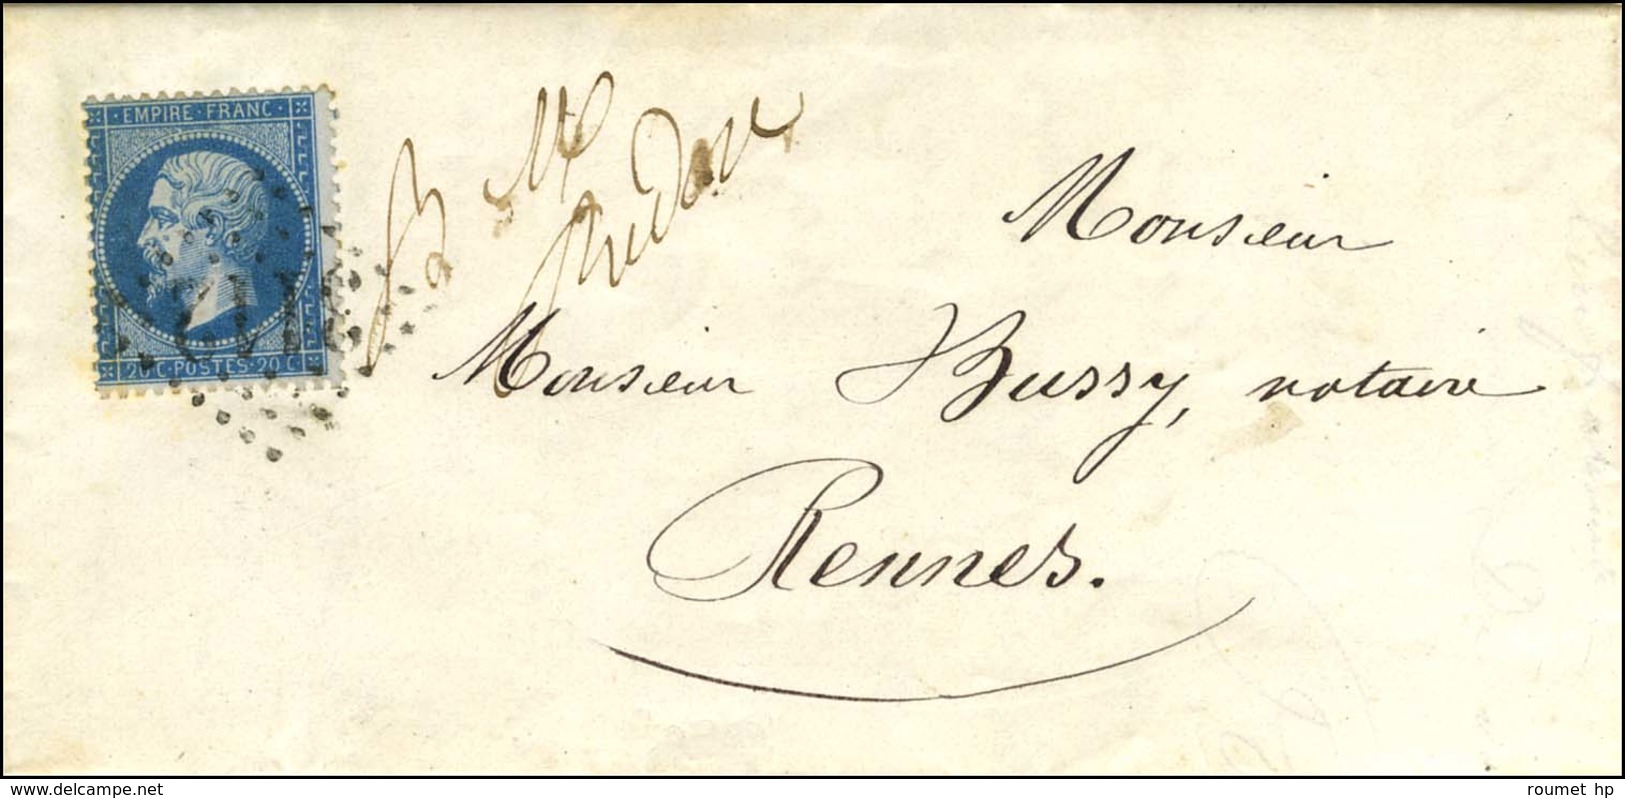 EMPIRE · FRANC ·
20 C · POSTES · 20 C
Monsieur
Monsieur Bussy, notaire
Rennes.
www.delcampe.net
roumet hp